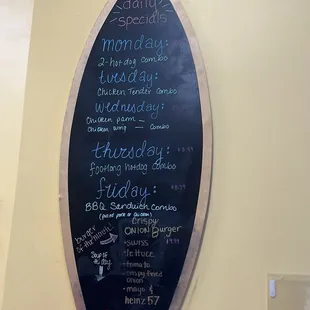 daily
specials
monday:
2-hotdog combos
tuesday:
Chicken Tender Combo
wednesday:
Chicken parm —
Chicken wing — combo
thursday:
footlong hotdog combos
friday:
BBQ Sandwich combos
(pulled pork or chicken)
burger
of the month!
Crispy
ONION Burger
- swiss
- lettuce
- tomato
- crispy fried
onion
- mayo &
heinz 57
Soup of
the day